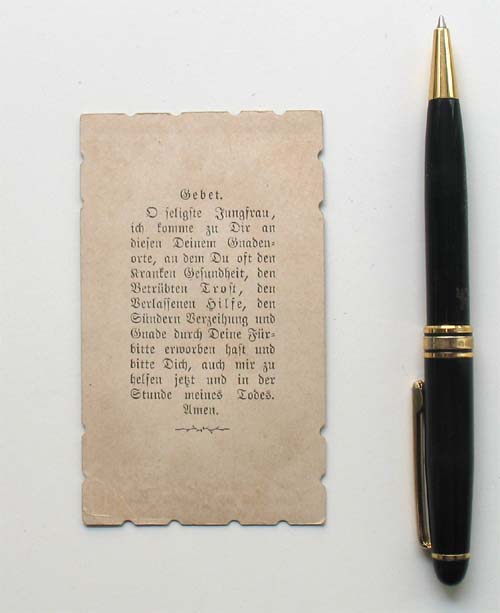 Gebet.
O seligste Jungfrau,
ich komme zu Dir an
diesen Deinem Gnaden-
orte, an dem Du oft den
Kranken Gesundheit, den
Betrübten Trost, den
Verlassenen Hilfe, den
Sündern Verzeihung und
Gnade durch Deine Für-
bitte erworben hast und
bitte Dich, auch mir zu
helfen jetzt und in der
Stunde meines Todes.
Amen.